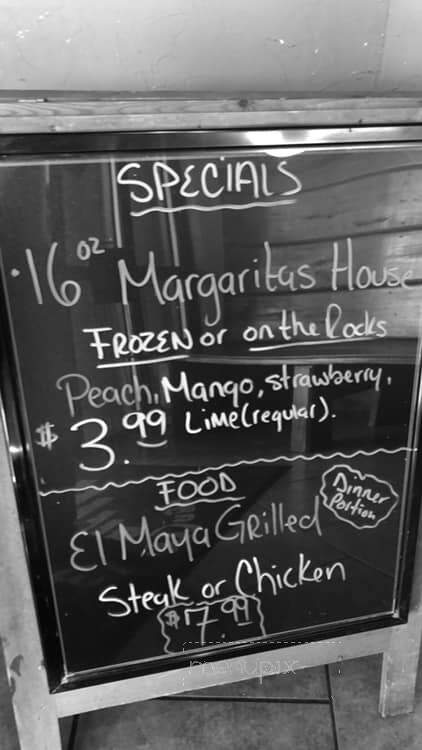 SPECIALS
·16 oz Margaritas House
FROZEN or on the Rocks
Peach, Mango, strawberry,
$3.99 Lime(regular).
FOOD
Dinner
Portion
El Maya Grilled
Steak or Chicken
$17.99
menupix